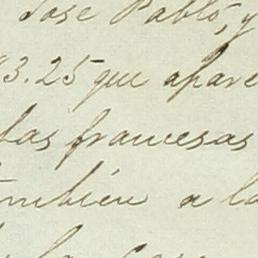 José Pablo, y
3.25 que apare
las francesas
también a la